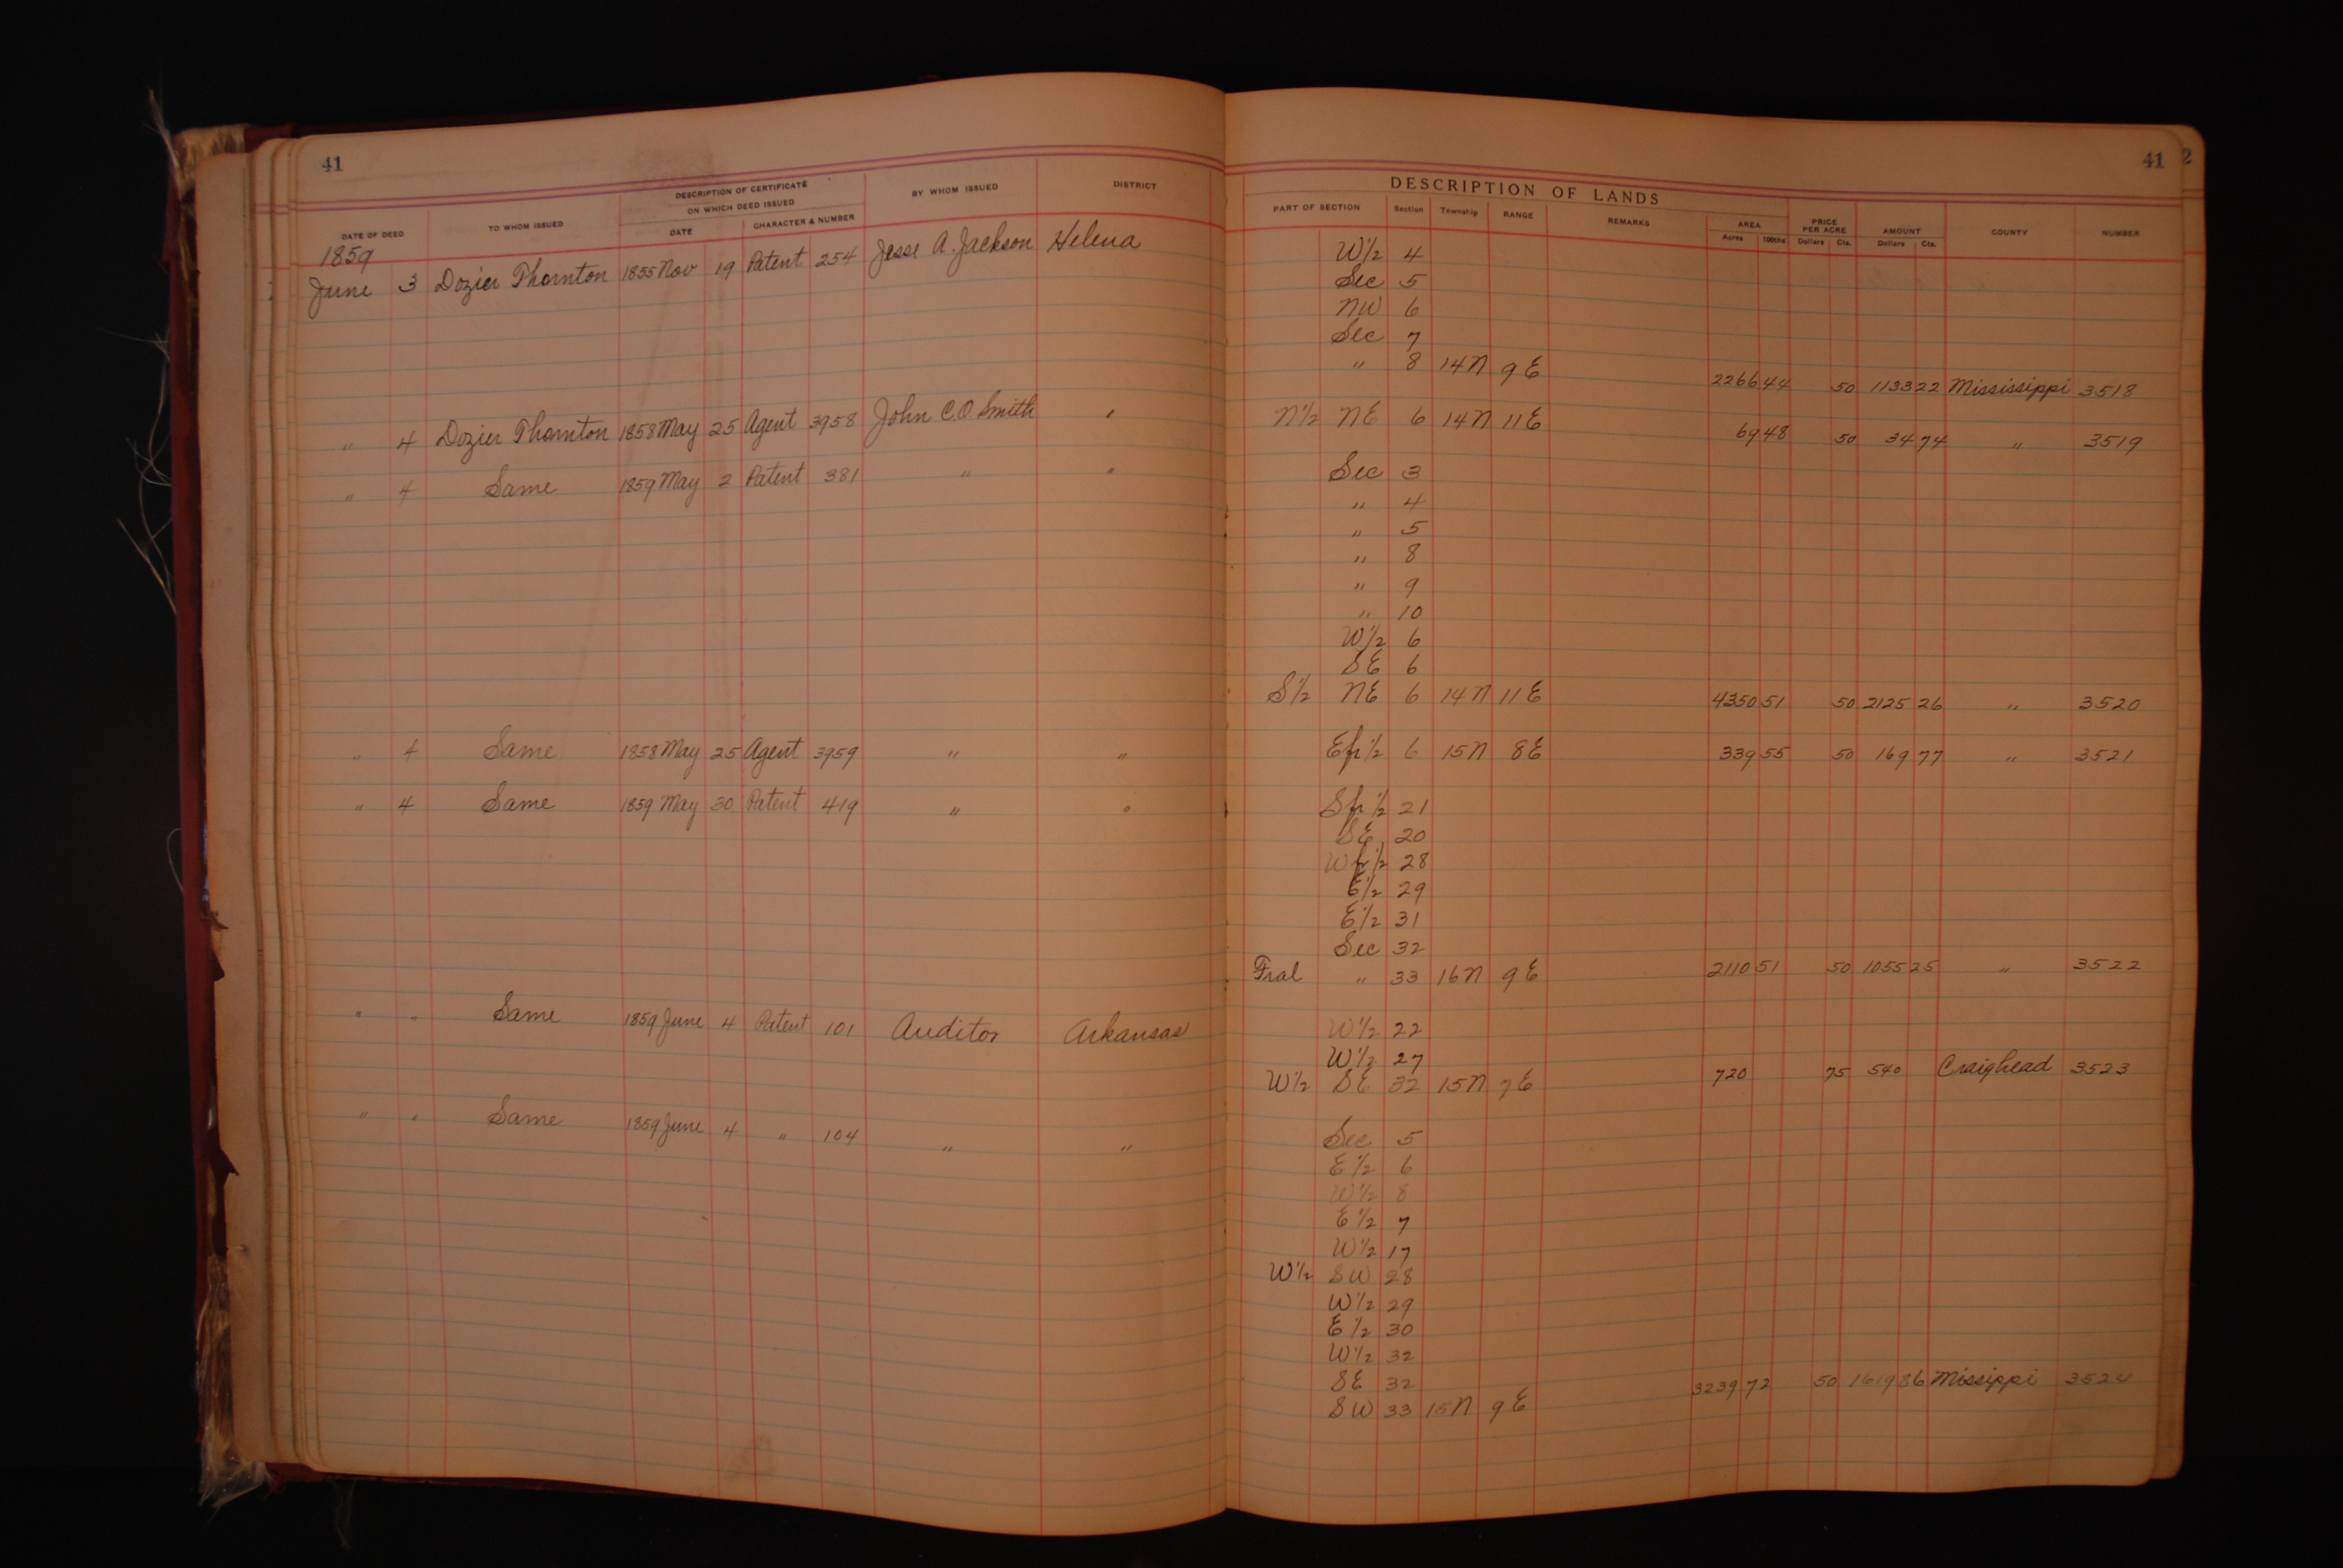 41
DATE OF DEED TO WHOM ISSUED DESCRIPTION OF CERTIFICATE ON WHICH DEED ISSUED DATE CHARACTER & NUMBER BY WHOM ISSUED DISTRICT
1859
June 3 Dozier Thornton 1855 Nov 19 Patent 254 Jesse A. Jackson Helena
" 4 Dozier Thornton 1858 May 25 Agent 3958 John C.O. Smith "
" 4 Same 1859 May 2 Patent 381 " "
" 4 Same 1858 May 25 Agent 3959 " "
" 4 Same 1859 May 30 Patent 419 " "
" " Same 1859 June 4 Patent 101 Auditor Arkansas
" " Same 1859 June 4 " 104 " "
41 2
DESCRIPTION OF LANDS
PART OF SECTION Section Township RANGE REMARKS AREA Acres 100ths PRICE PER ACRE Dollars Cts. AMOUNT Dollars Cts. COUNTY NUMBER
W 1/2 4
Sec 5
NW 6
Sec 7
" 8 14N 9E 2266 44 50 1133 22 Mississippi 3518
N 1/2 NE 6 14N 11E 69 48 50 34 74 " 3519
Sec 3
" 4
" 5
" 8
" 9
" 10
W 1/2 6
SE 6
S 1/2 NE 6 14N 11E 4350 51 50 2125 26 " 3520
E fr 1/2 6 15N 8E 339 55 50 169 77 " 3521
S fr 1/2 21
SE 20
W fr 1/2 28
E 1/2 29
E 1/2 31
Sec 32
Fral " 33 16N 9E 2110 51 50 1055 25 " 3522
W 1/2 22
W 1/2 27
W 1/2 SE 32 15N 7E 720 75 540 Craighead 3523
Sec 5
E 1/2 6
W 1/2 8
E 1/2 7
W 1/2 17
W 1/2 SW 28
W 1/2 29
E 1/2 30
W 1/2 32
SE 32
SW 33 15N 9E 3239 72 50 1619 86 Missippi 3524